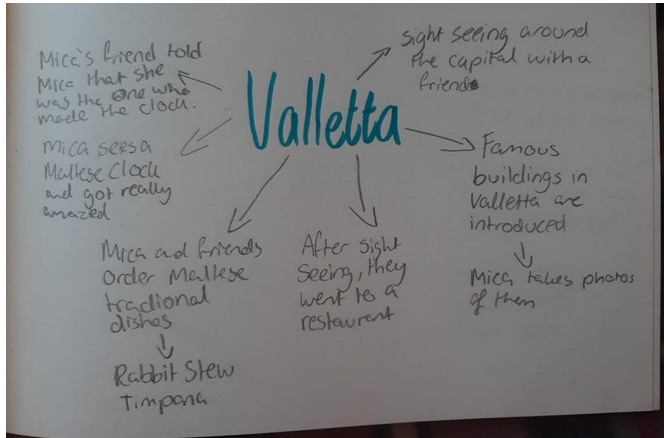 Valletta
sight seeing around
the capital with a
friend
Famous
buildings in
Valletta are
introduced
Mica takes photos
of them
After sight
seeing, they
went to a
restaurent
Mica and friends
Order Maltese
tradional
dishes
Rabbit Stew
Timpana
Mica sees a
Maltese Clock
and got really
amazed
Mica's friend told
Mica that she
was the one who
made the clock.